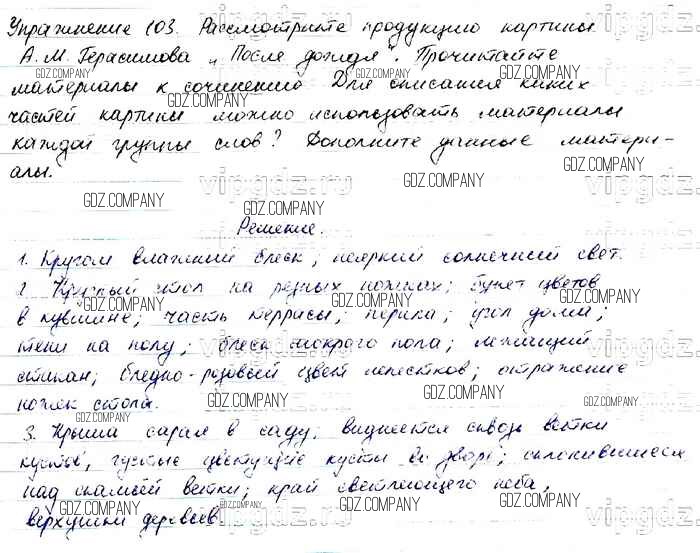 Упражнение 103. Рассмотрите продукцию картины
А. М. Герасимова „После дождя". Прочитайте
материалы к сочинению Для описания каких
частей картины можно использовать материалы
каждой группы слов? Дополните данные матери-
алы.
Решение.
1. Кругом влажный блеск, неяркий солнечный свет.
2 Круглый стол на резных ножках; букет цветов
в кувшине; часть террасы; перила; угол дома;
тени на полу; блеск мокрого пола; лежащий
стакан; бледно-розовый цвет лепестков; отражение
ножек стола.
3. Крыша сарая в саду, виднеется сквозь ветки
кустов, густые цветущие кусты во дворе; склонившиеся
над скамьёй ветки; край светлеющего неба,
верхушки деревьев
vipgdz.ru
GDZ.COMPANY